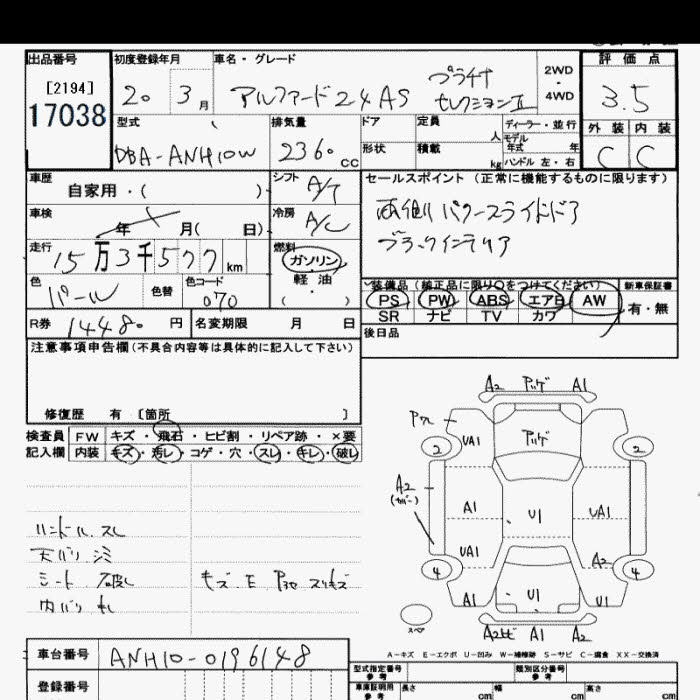 出品番号 初度登録年月 車名・グレード 評価点
[2194]
17038
20 3月 アルファード24AS プラチナ セレクションⅡ 2WD・4WD 3.5
型式 排気量 ドア 定員 ディーラー・並行 外装 内装
DBA-ANH10W 2360cc 形状 積載 人 kg モデル年式 年 ハンドル 左・右 C C
車歴 自家用・( ) シフト A/T セールスポイント(正常に機能するものに限ります)
車検 年 月( 日) 冷房 A/C 両側パワースライドドア
走行 15万3千577km 燃料 ガソリン・軽油・( ) ブラックインテリア
色 パール 色替 色コード 070 装備品(純正品に限り○をつけてください) 新車保証書
PS PW ABS エアB AW 有・無
SR ナビ TV カワ
R券 14480円 名変期限 月 日 後日品
注意事項申告欄(不具合内容等は具体的に記入して下さい)
修復歴 有 [箇所 ]
検査員 FW キズ・飛石・ヒビ割・リペア跡・×要
記入欄 内装 キズ・汚レ・コゲ・穴・スレ・キレ・破レ
ハンドル スレ
天バリ シミ
シート 破レ キズ・E
内バリ キレ
A2 A1
2 UA1 2
A2
A1 U1 UA1
UA1 A2
4 4
A1 U1 U1
スペア A1 A2
A-キズ E-エクボ U-凹み W-補修跡 S-サビ C-腐食 XX-交換済
車台番号 ANH10-0196148 型式指定番号 参考 類別区分番号 参考
登録番号 車庫証明用 参考 長さ cm 幅 cm 高さ cm